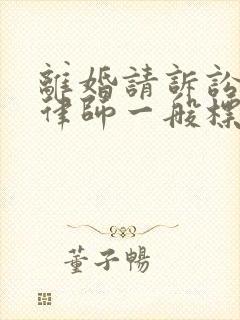 離婚請訴訟
律師一般標
董子暢